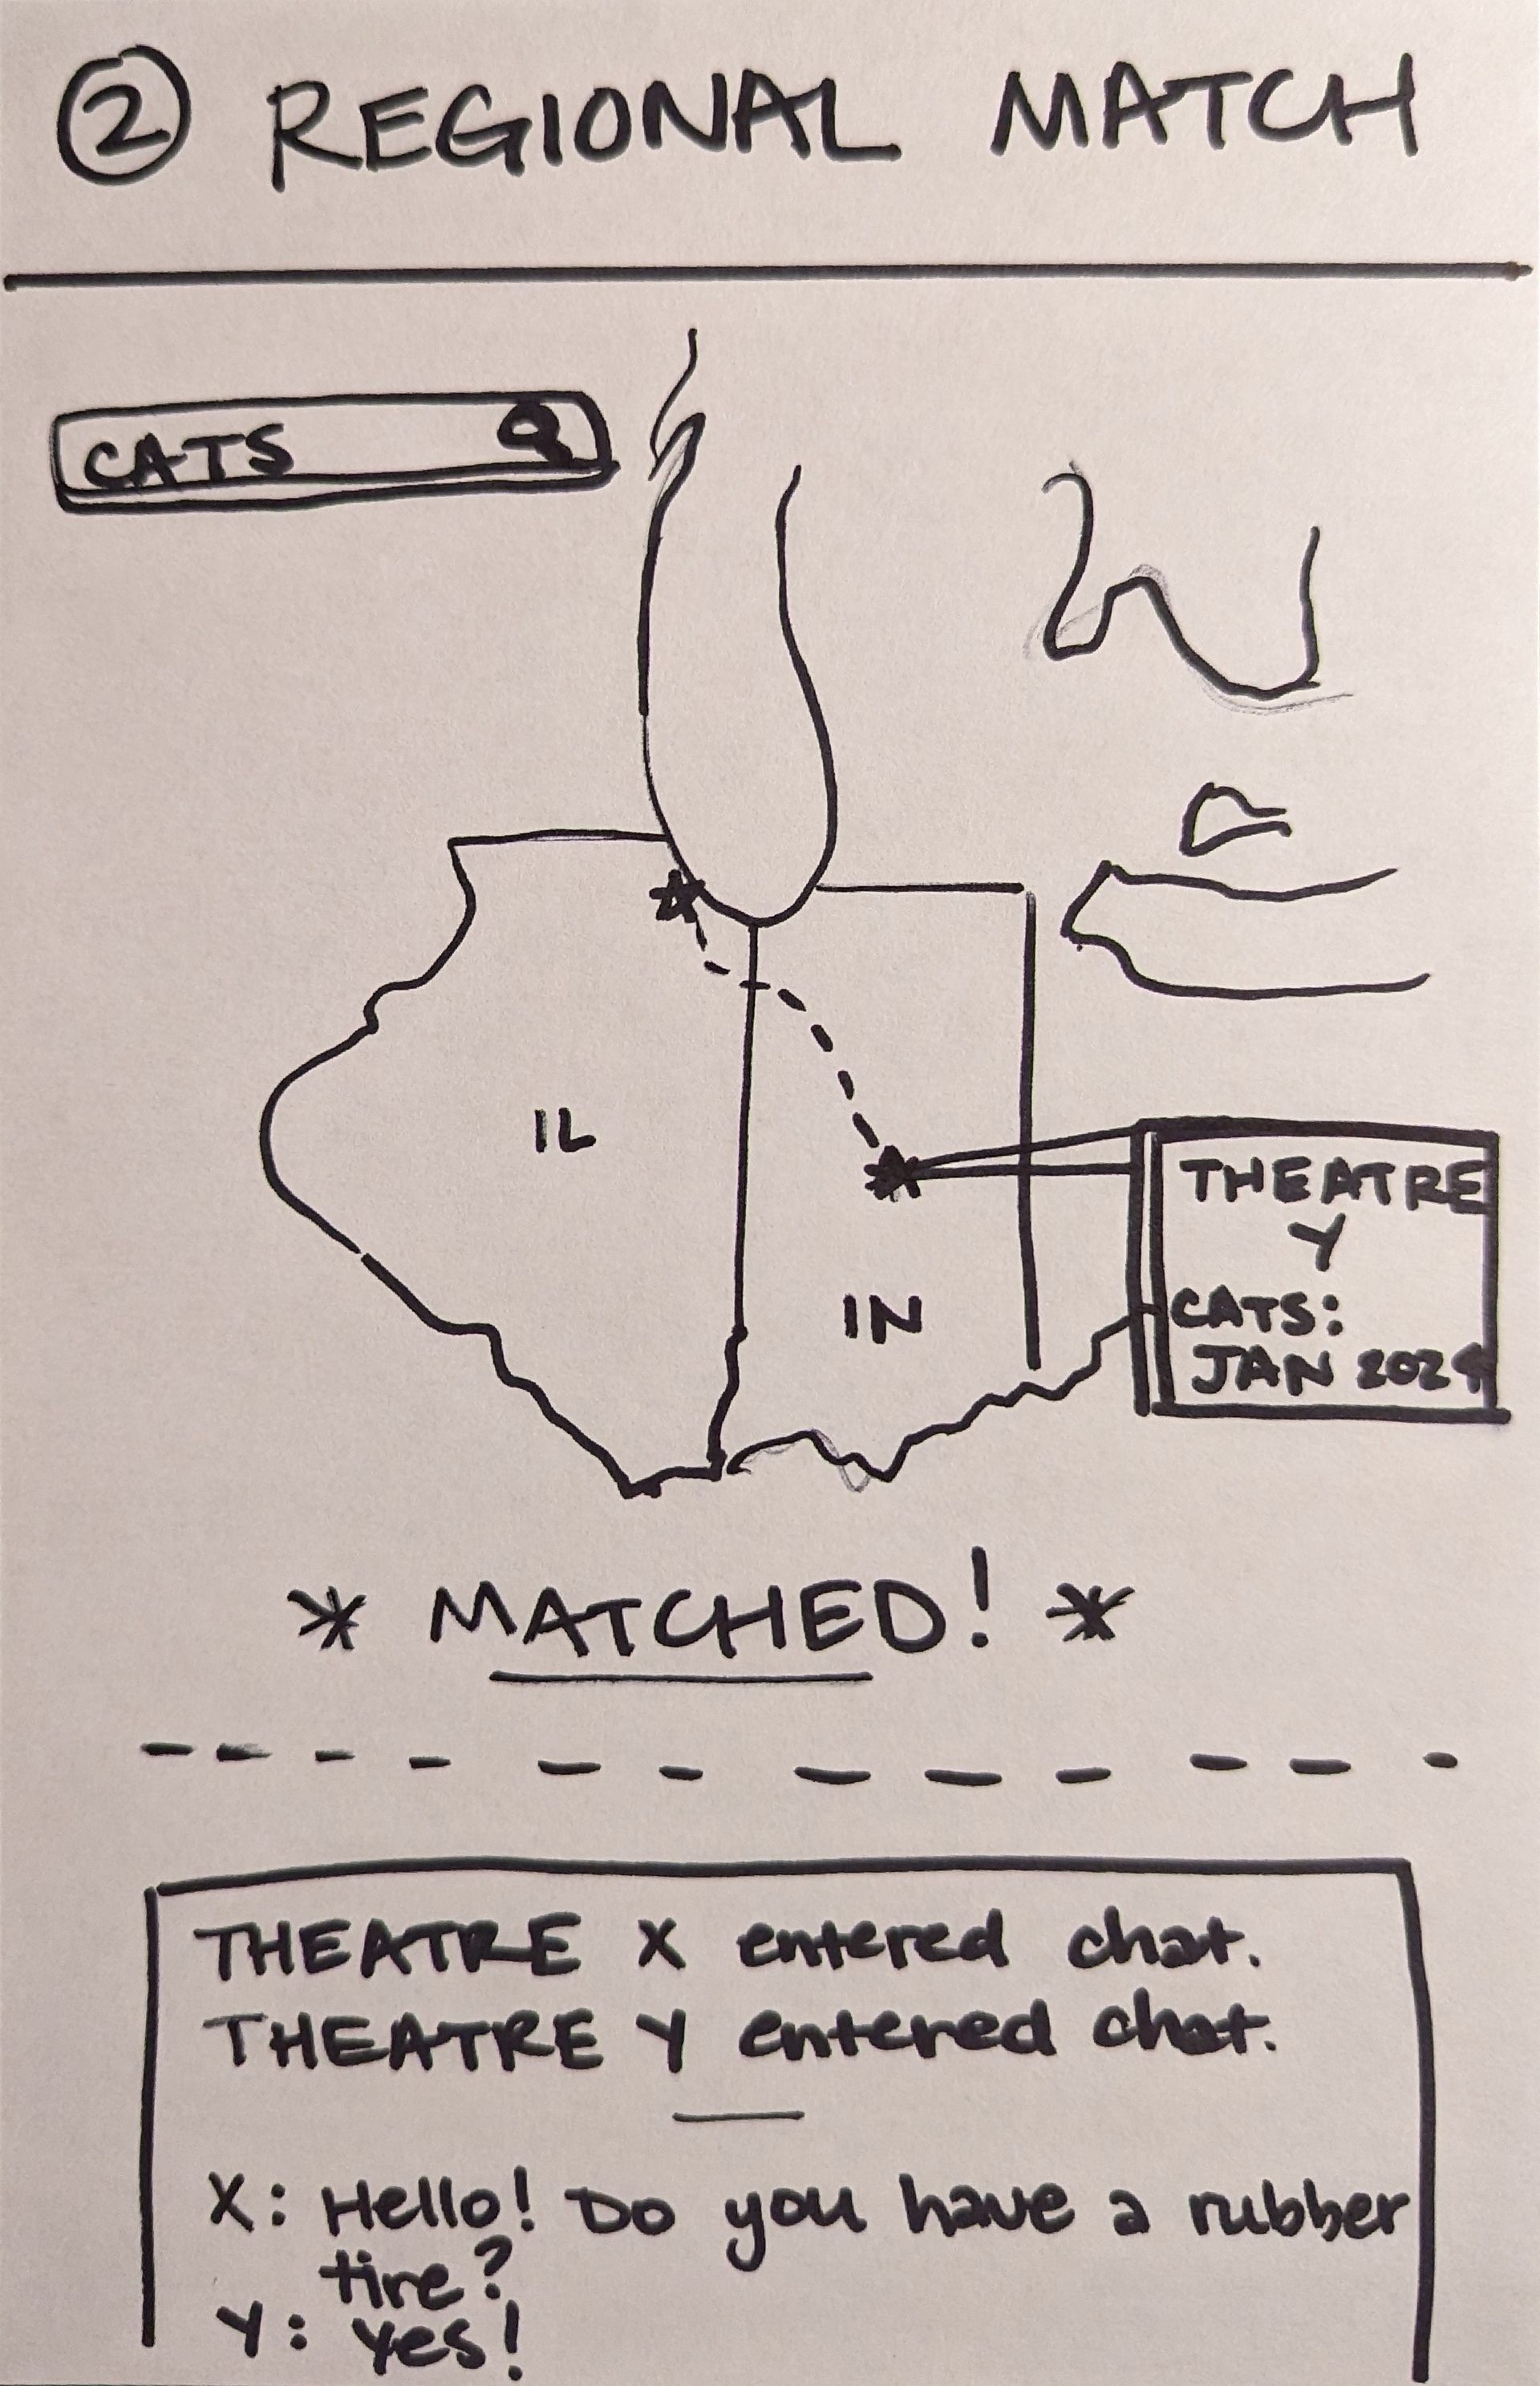 ② REGIONAL MATCH
CATS
IL
IN
THEATRE
Y
CATS:
JAN 2024
* MATCHED! *
THEATRE X entered chat.
THEATRE Y entered chat.
X: Hello! Do you have a rubber
tire?
Y: Yes!